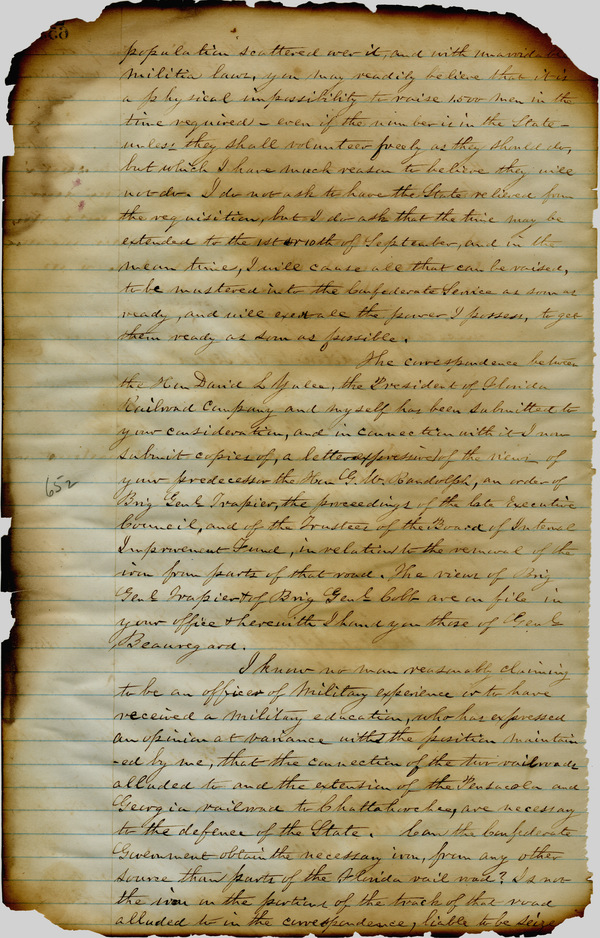 55
population scattered over it, and with unavoidable
militia laws, you may readily believe that it is
a physical impossibility to raise 1500 men in the
time required - even if the number is in the State -
unless they shall volunteer freely as they should do,
but which I have much reason to believe they will
not do. I do not ask to have the State relieved from
the requisition, but I do ask that the time may be
extended to the 1st or 10th of September, and in the
mean times, I will cause all that can be raised,
to be mustered into the Confederate Service as soon as
ready, and will exert all the power I possess, to get
them ready as soon as possible.
The correspondence between
the Hon David L Yulee, the President of Florida
Railroad Company and myself has been submitted to
your consideration, and in connection with it I now
submit copies of, a letter expressive of the views of
your predecessor the Hon G. W. Randolph, an order of
Brig Genl Trapier, the proceedings of the late Executive
Council, and of the Trustees of the Board of Internal
Improvement Fund, in relation to the removal of the
iron from parts of that road. The views of Brig
Genl Trapier & of Brig Genl Cobb are on file in
your office & herewith I hand you those of Genl
Beauregard.
I know no man reasonably claiming
to be an officer of Military experience or to have
received a Military education, who has expressed
an opinion at variance with the position maintain
-ed by me, that the connection of the two railroads
alluded to and the extension of the Pensacola and
Georgia railroad to Chattahoochee, are necessary
to the defence of the State. Can the Confederate
Government obtain the necessary iron, from any other
source than parts of the Florida rail road? Is not
the iron on the portions of the track of that road
alluded to in the correspondence, liable to be seize
652